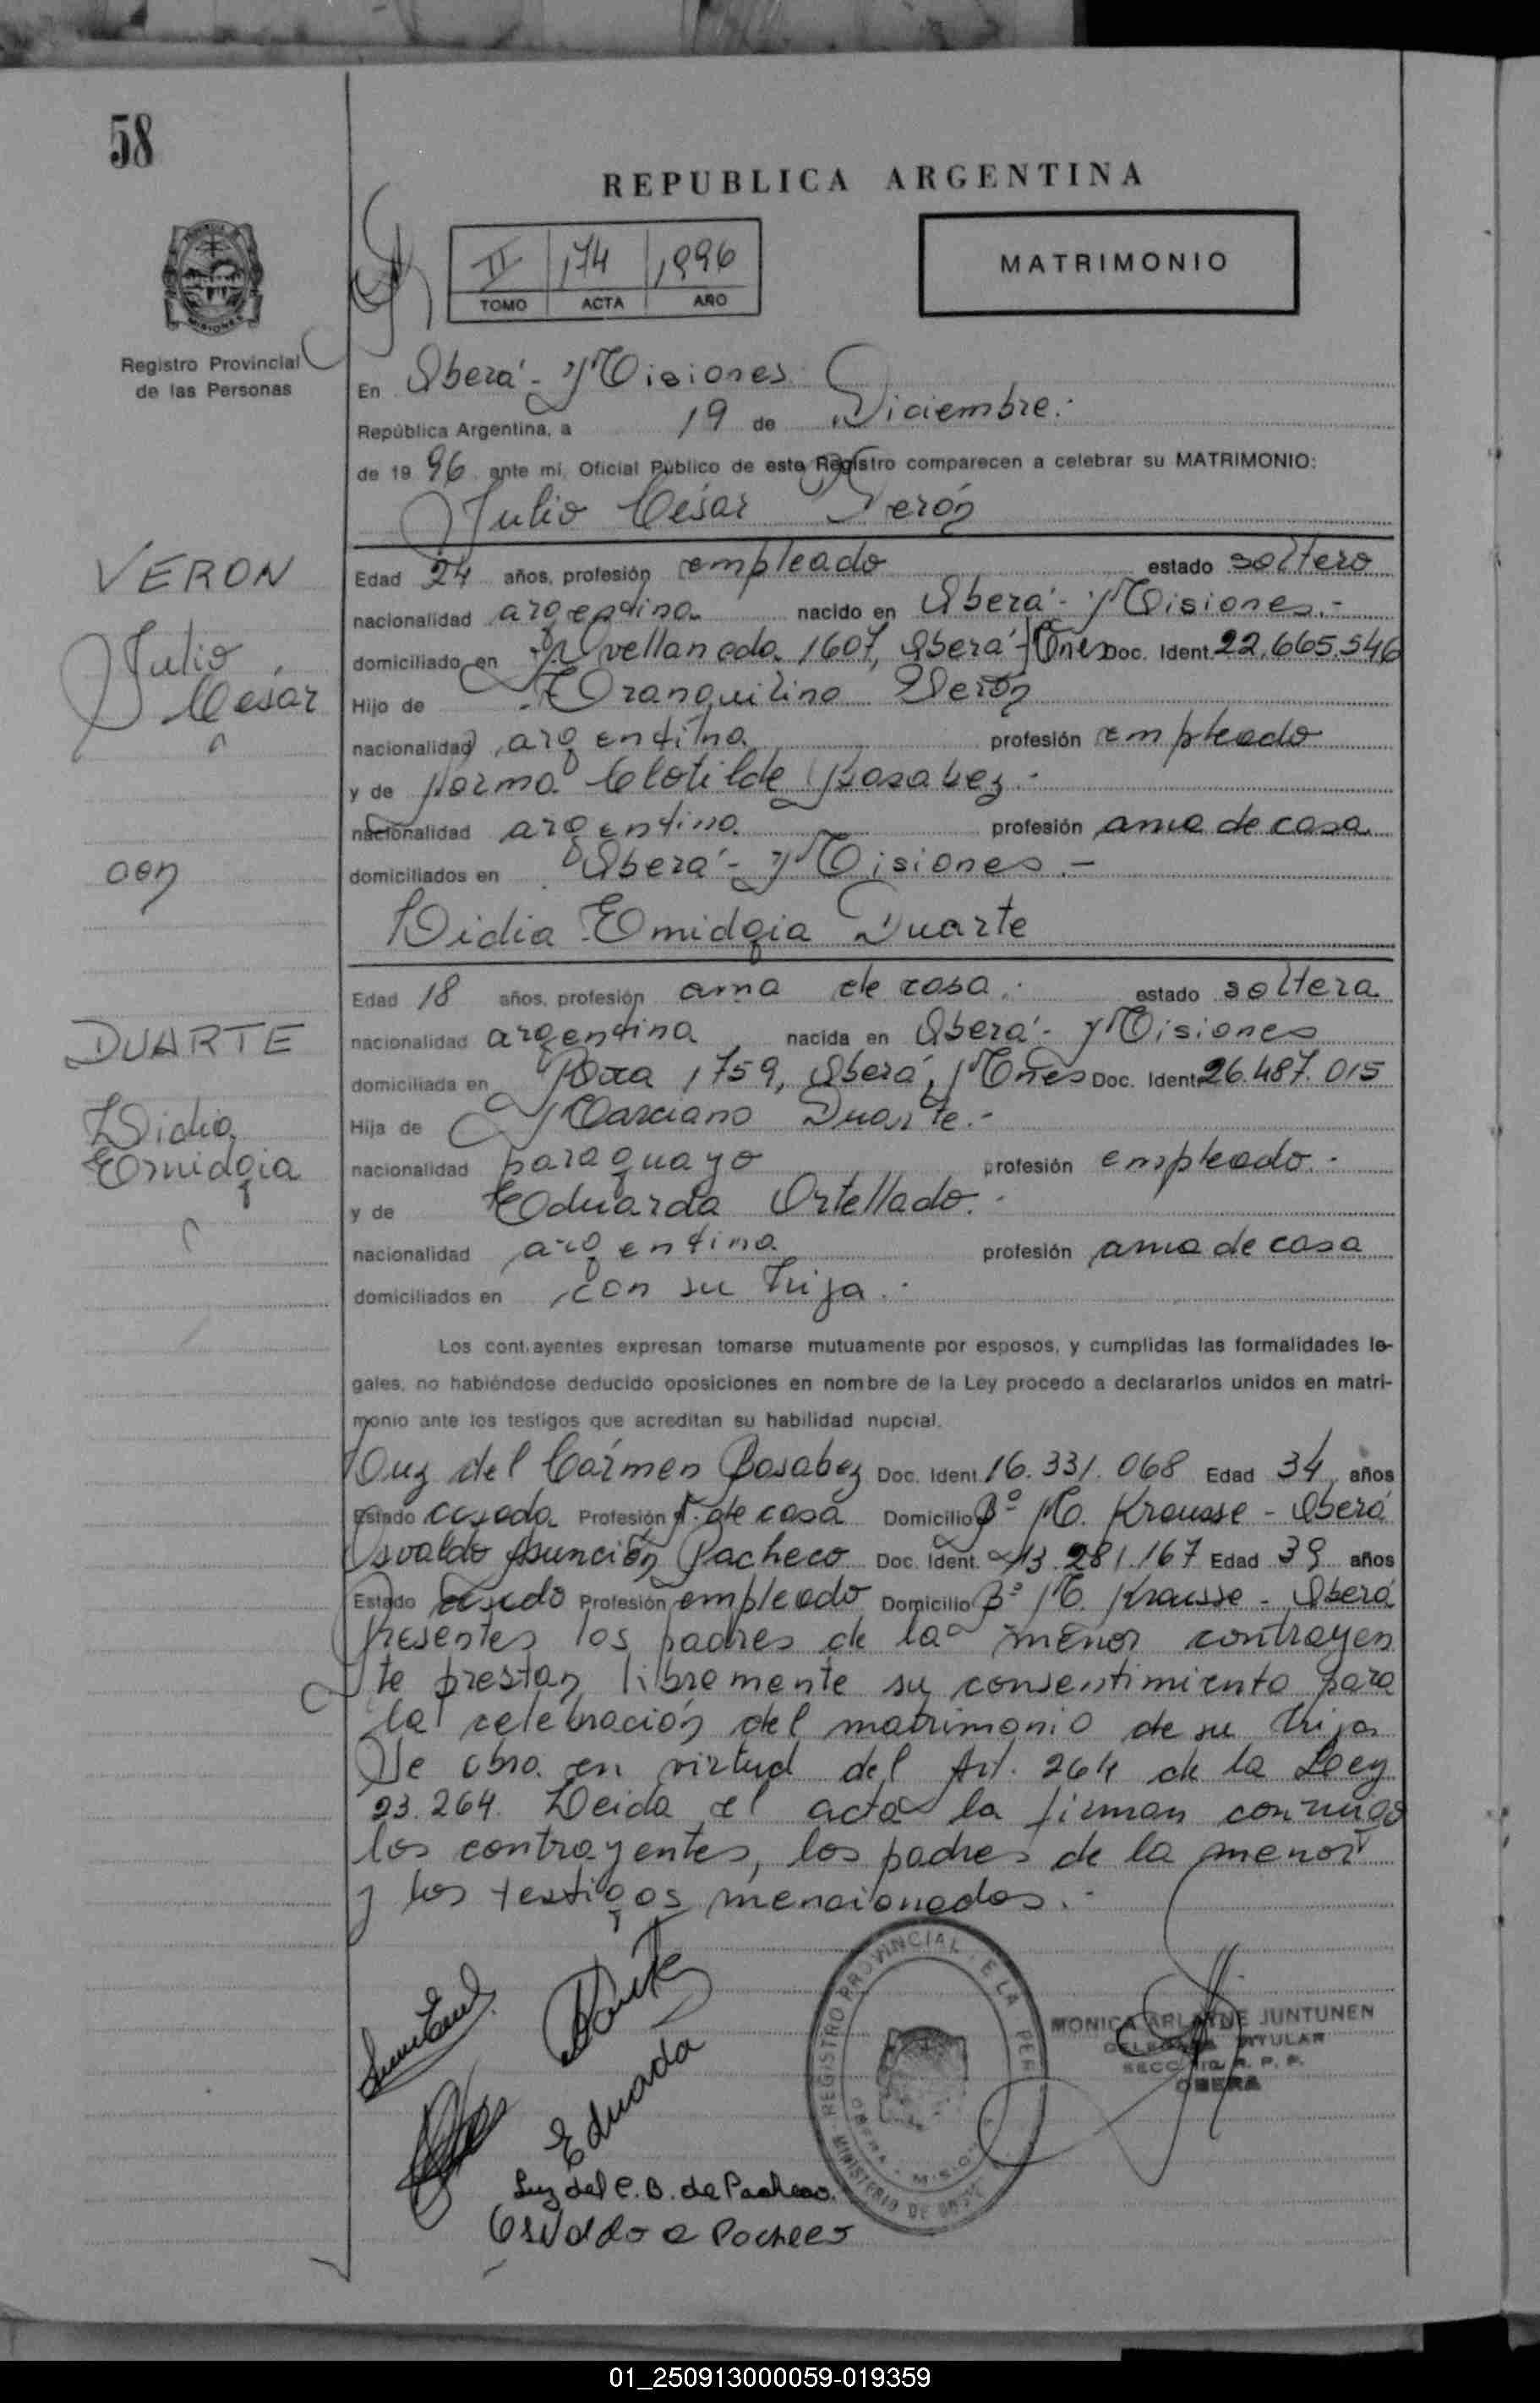 58
REPUBLICA ARGENTINA
II 174 1996
TOMO ACTA AÑO
MATRIMONIO
Registro Provincial
de las Personas
En Oberá - Misiones
República Argentina, a 19 de Diciembre.-
de 1996 ante mí, Oficial Público de este Registro comparecen a celebrar su MATRIMONIO:
Julio César Verón
VERON
Julio
César
Edad 24 años, profesión empleado estado soltero
nacionalidad argentina nacido en Oberá - Misiones.-
domiciliado en Avellaneda 1607, Oberá - Mnes Doc. Ident. 22.665.546
Hijo de Tranquilino Verón
nacionalidad argentina profesión empleado
y de Norma Clotilde Basabez.-
nacionalidad argentina profesión ama de casa
domiciliados en Oberá - Misiones.-
con
Lidia Emidgia Duarte
DUARTE
Lidia
Emidgia
Edad 18 años, profesión ama de casa.- estado soltera
nacionalidad argentina nacida en Oberá - Misiones
domiciliada en 1759, Oberá, Mnes Doc. Ident. 26.487.015
Hija de Marciano Duarte.-
nacionalidad paraguayo profesión empleado.-
y de Eduarda Ortellado.-
nacionalidad argentina profesión ama de casa
domiciliados en con su hija.-
Los contrayentes expresan tomarse mutuamente por esposos, y cumplidas las formalidades le-
gales, no habiéndose deducido oposiciones en nombre de la Ley procedo a declararlos unidos en matri-
monio ante los testigos que acreditan su habilidad nupcial.
Luz del Cármen Basabez Doc. Ident. 16.331.068 Edad 34 años
Estado casada Profesión A. de casa Domicilio Bº M. Krausse - Oberá
Osvaldo Asunción Pacheco Doc. Ident. 13.281.167 Edad 39 años
Estado casado Profesión empleado Domicilio Bº M. Krausse - Oberá
Presentes los padres de la menor contrayen
te prestan libremente su consentimiento para
la celebración del matrimonio de su hija
Se obra en virtud del Art. 264 de la Ley
23.264. Leida el acta la firman conmigo
los contrayentes, los padres de la menor
y los testigos mencionados.-
REGISTRO PROVINCIAL DE LA PER
OBERA - MISIO
MINISTERIO DE
MONICA ARLAYNE JUNTUNEN
DELEGADA TITULAR
R. P. P.
OBERA
Eduarda
Luz del C. B. de Pacheco.
Osvaldo a Pacheco
01_250913000059-019359